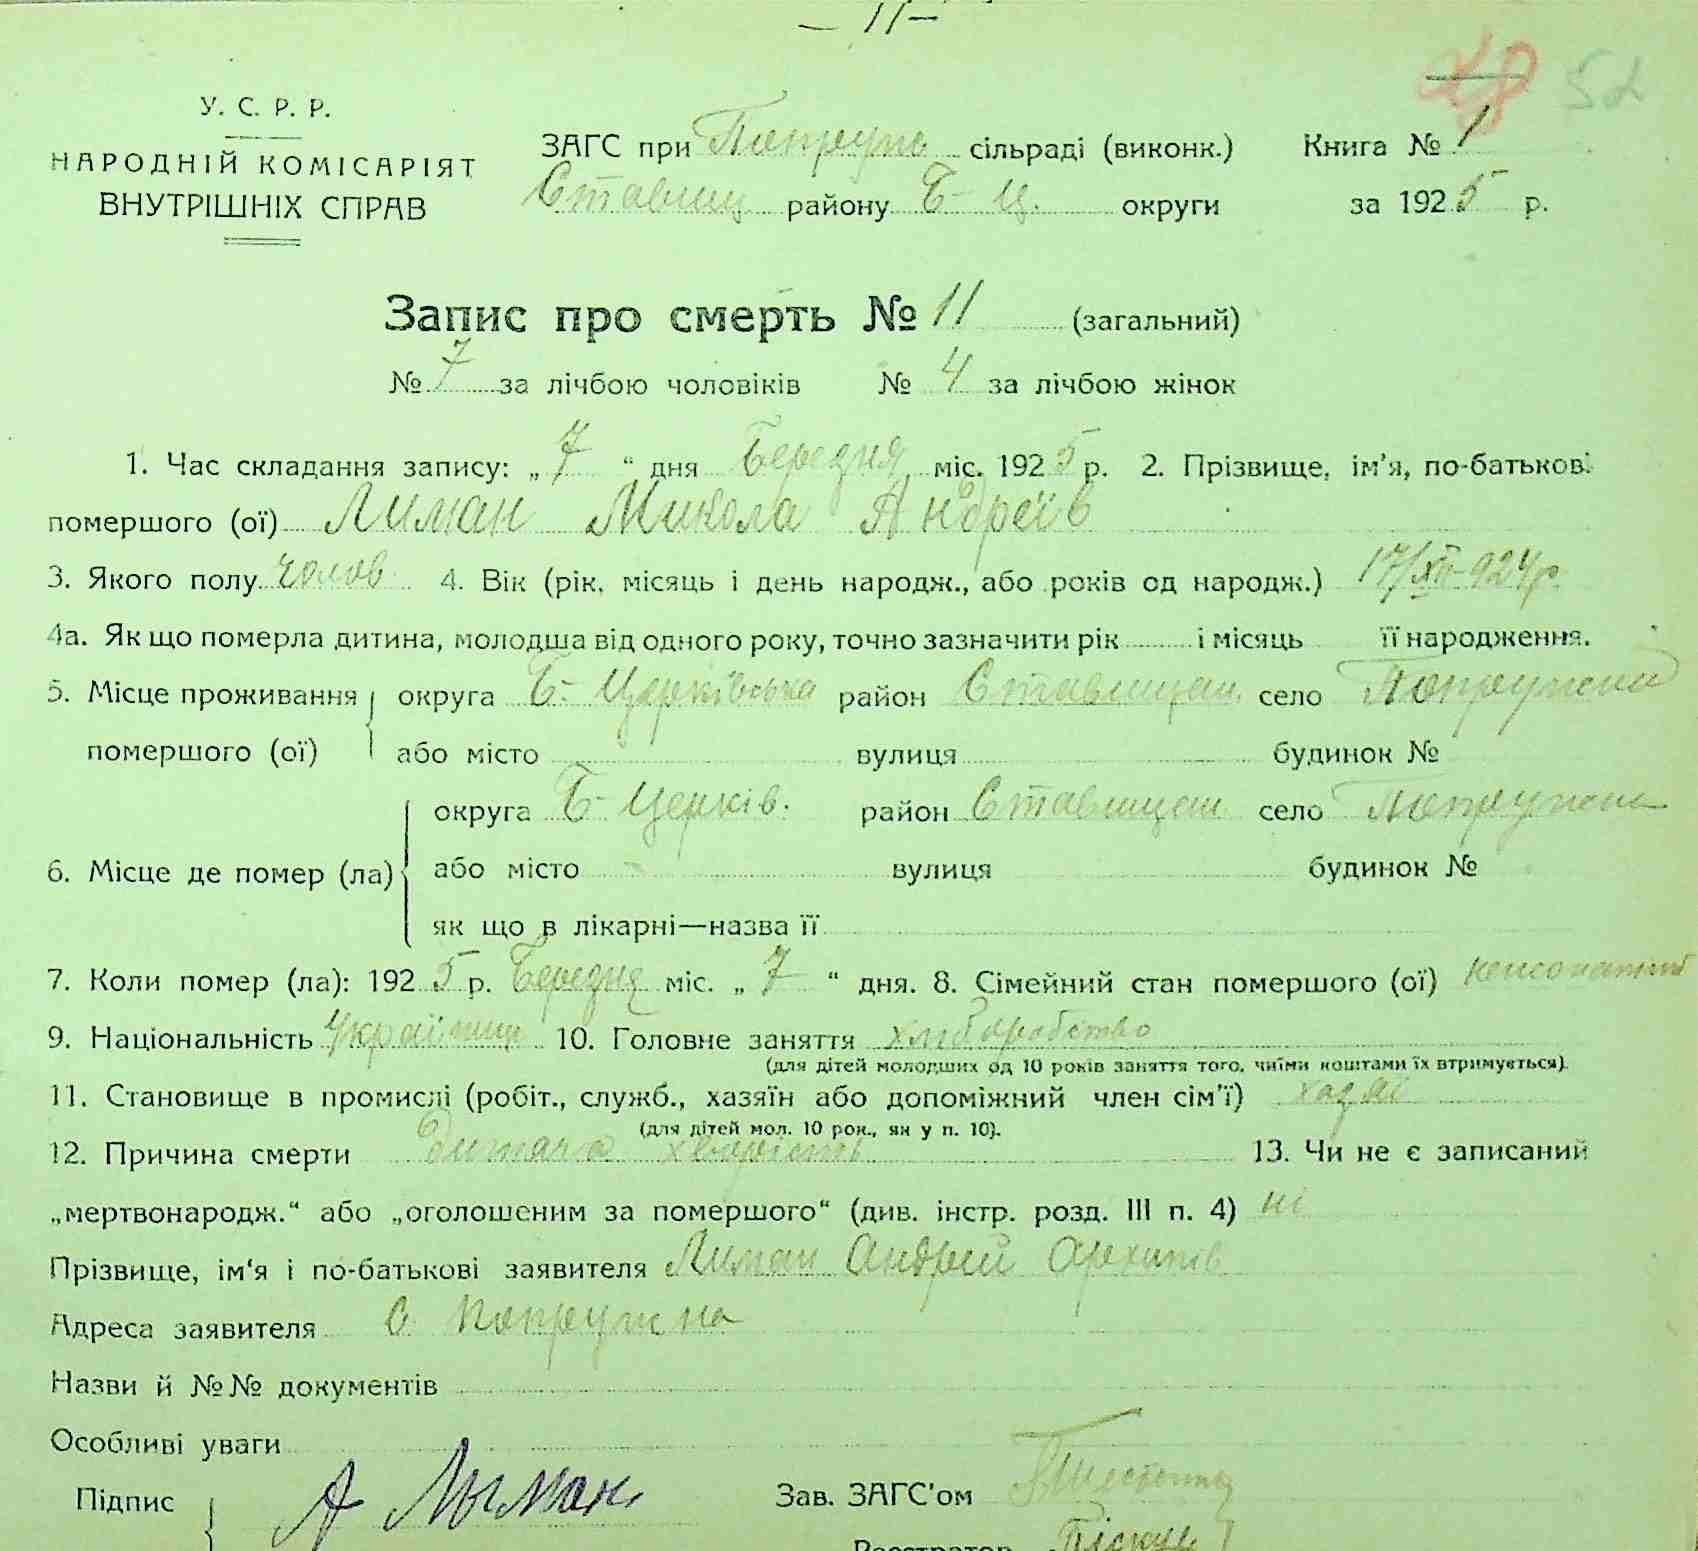 — 11 —
52
У. С. Р. Р.
НАРОДНІЙ КОМІСАРІЯТ
ВНУТРІШНІХ СПРАВ
ЗАГС при Попруж сільраді (виконк.) Книга № 1
Ставищ району Б-Ц. округи за 1925 р.
Запис про смерть № 11 (загальний)
№ 7 за лічбою чоловіків № 4 за лічбою жінок
1. Час складання запису: „7“ дня Березня міс. 1925 р. 2. Прізвище, ім'я, по-батькові
помершого (ої) Лиман Микола Андреїв
3. Якого полу чолов 4. Вік (рік, місяць і день народж., або років од народж.) 17/XII-924р.
4а. Як що померла дитина, молодша від одного року, точно зазначити рік і місяць її народження.
5. Місце проживання округа Б-Церківська район Ставищан село Попружна
помершого (ої) або місто вулиця будинок №
округа Б-Церків. район Ставищан село Попружна
6. Місце де помер (ла) або місто вулиця будинок №
як що в лікарні—назва її
7. Коли помер (ла): 1925 р. Березня міс. „7“ дня. 8. Сімейний стан помершого (ої)
9. Національність Українец 10. Головне заняття хліборобство
(для дітей молодших од 10 років заняття того, чиїми коштами їх втримується).
11. Становище в промислі (робіт., служб., хазяїн або допоміжний член сім'ї) хазяї
(для дітей мол. 10 рок., як у п. 10).
12. Причина смерти Дитяча хворість 13. Чи не є записаний
„мертвонародж.“ або „оголошеним за помершого“ (див. інстр. розд. III п. 4) ні
Прізвище, ім'я і по-батькові заявителя Лиман Андрей Архипів
Адреса заявителя с Попружна
Назви й №№ документів
Особливі уваги
Підпис А Лыман Зав. ЗАГС'ом
Реєстратор